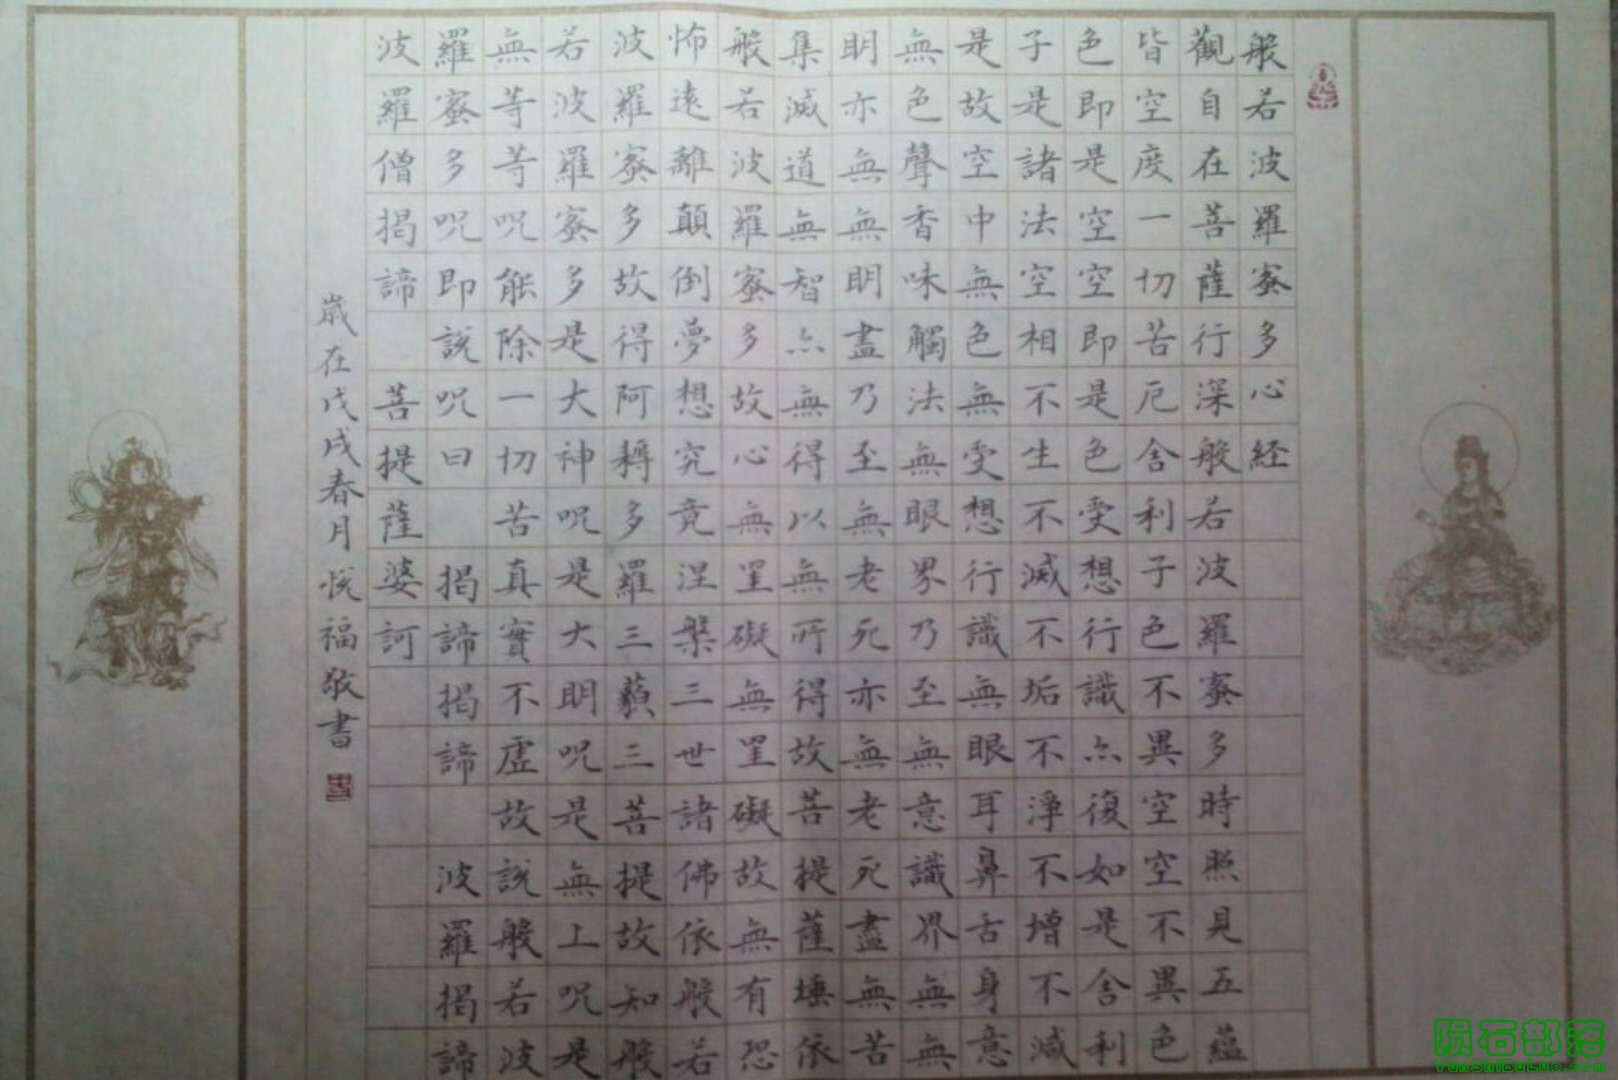 般若波羅蜜多心経
觀自在菩薩行深般若波羅蜜多時照見五蘊
皆空度一切苦厄舍利子色不異空空不異色
色即是空空即是色受想行識亦復如是舍利
子是諸法空相不生不滅不垢不淨不增不減
是故空中無色無受想行識無眼耳鼻舌身意
無色聲香味觸法無眼界乃至無意識界無無
明亦無無明盡乃至無老死亦無老死盡無苦
集滅道無智亦無得以無所得故菩提薩埵依
般若波羅蜜多故心無罣礙無罣礙故無有恐
怖遠離顛倒夢想究竟涅槃三世諸佛依般若
波羅蜜多故得阿耨多羅三藐三菩提故知般
若波羅蜜多是大神呪是大明呪是無上呪是
無等等呪能除一切苦真實不虛故說般若波
羅蜜多呪即說呪曰 揭諦揭諦 波羅揭諦
波羅僧揭諦 菩提薩婆訶
歲在戊戌春月悅福敬書
陨石部落